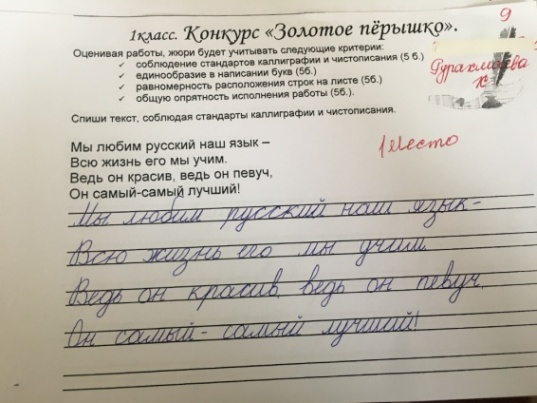 1класс. Конкурс «Золотое пёрышко».
9
Оценивая работы, жюри будет учитывать следующие критерии:
соблюдение стандартов каллиграфии и чистописания (5 б.)
единообразие в написании букв (5б.)
равномерность расположения строк на листе (5б.)
общую опрятность исполнения работы (5б).
Спиши текст, соблюдая стандарты каллиграфии и чистописания.
1 место
Мы любим русский наш язык –
Всю жизнь его мы учим.
Ведь он красив, ведь он певуч,
Он самый-самый лучший!
Мы любим русский наш язык-
Всю жизнь его мы учим.
Ведь он красив, ведь он певуч,
Он самый- самый лучший!